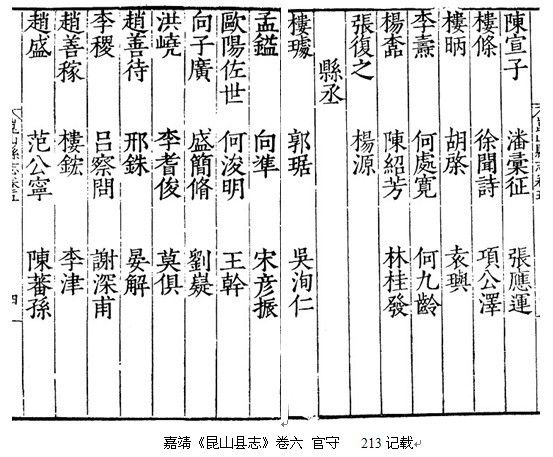 陳宣子 潘彙征 張應運
樓條 徐聞詩 項公澤
樓昞 胡棨 袁璵
李燾 何處寬 何九齡
楊 陳紹芳 林桂發
張復之 楊源
縣丞
樓璩 郭琚 吳洵仁
孟鎰 向準 宋彥振
歐陽佐世 何浚明 王幹
向子廣 盛簡脩 劉嶷
洪嶢 李耆俊 莫俱
趙善待 邢銖 晏解
李稷 呂察問 謝深甫
趙善稼 樓鋐 李津
趙盛 范公寧 陳蕃孫
崑山縣志卷五
四
嘉靖《昆山县志》卷六 官守 213记载